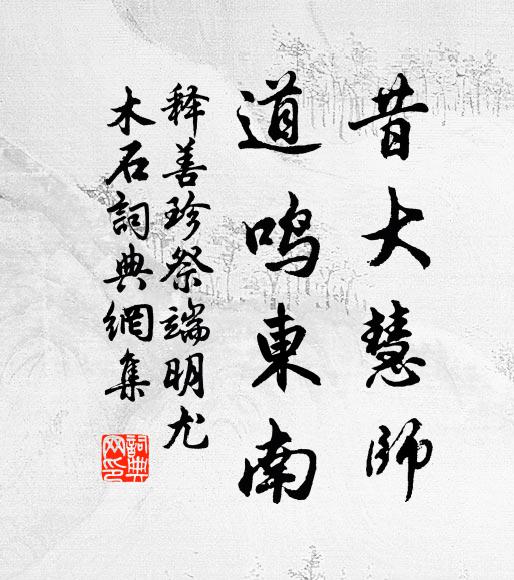 昔大慧师
道鸣東南
释善珍祭端明尤
木石詞典網集
詞典
网印